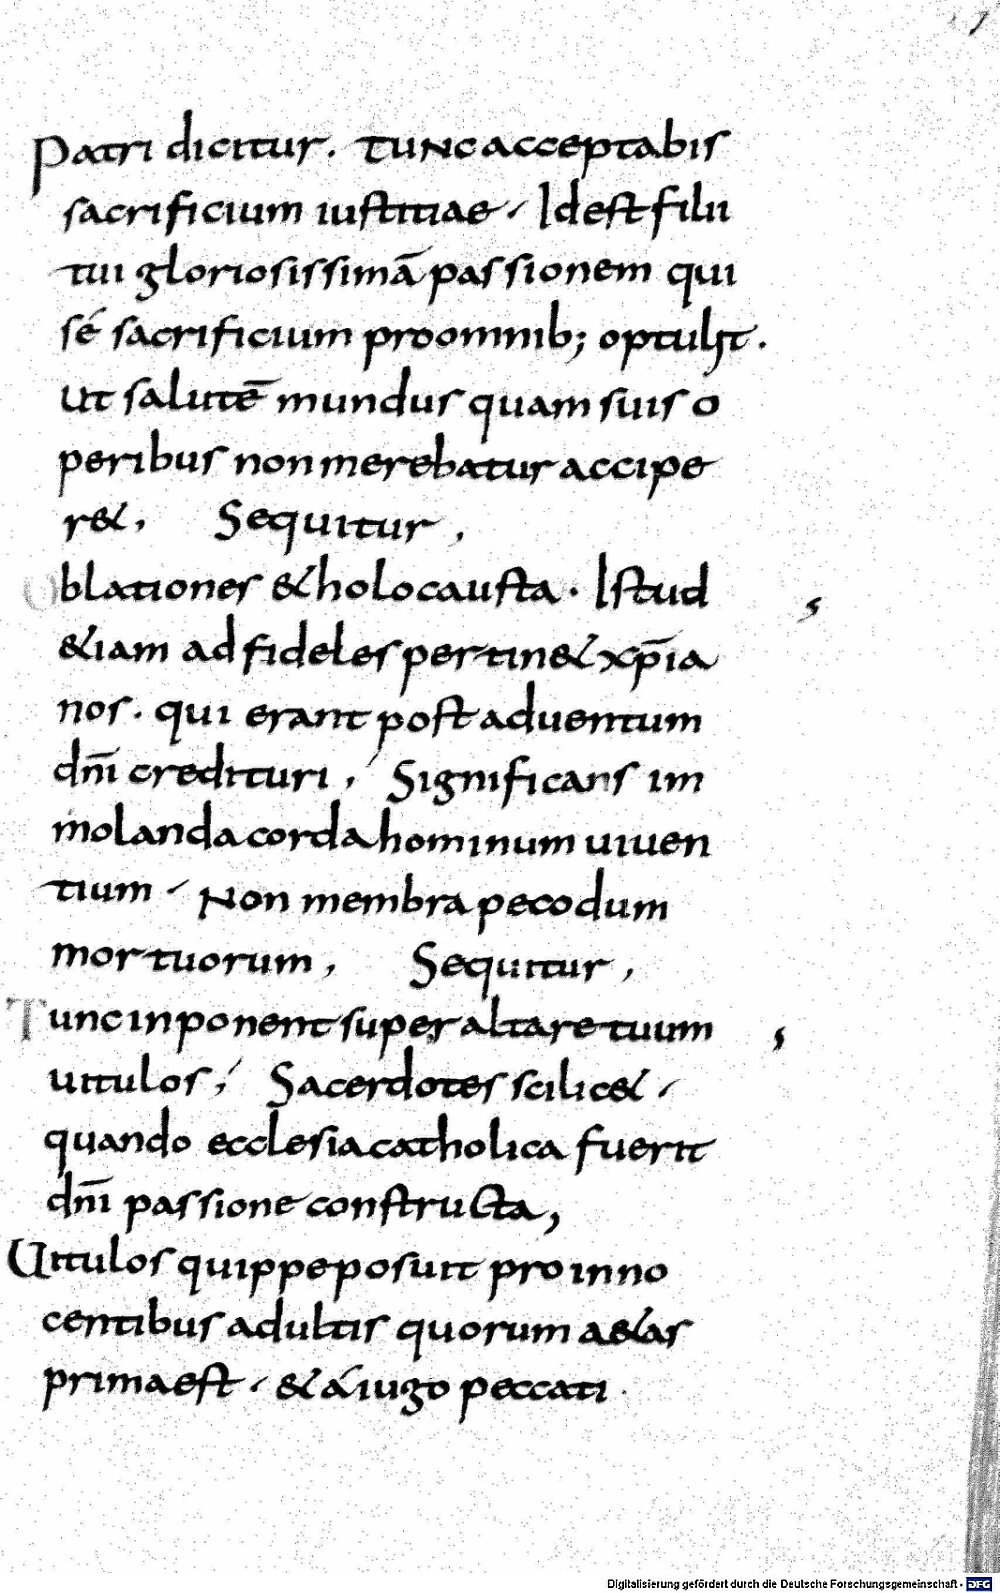 7
Patri dicitur. Tunc acceptabis
sacrificium iustitiae. Id est filii
tui gloriosissimā passionem qui
sé sacrificium pro omnib; optulit.
Ut salutē mundus quam suis o
peribus non merebatur accipe
r&. Sequitur,
Oblationes & holocausta. Istud
&iam ad fideles pertin& xp̄ia
nos. qui erant post aduentum
dn̄i credituri, Significans im
molanda corda hominum uiuen
tium. Non membra pecodum
mortuorum, Sequitur,
Tunc inponent super altare tuum
uitulos; Sacerdotes scilic&.
quando ecclesia catholica fuerit
dn̄i passione constructa,
Uitulos quippe posuit pro inno
centibus adultis quorum a&as
prima est. & á iugo peccati.
Digitalisierung gefördert durch die Deutsche Forschungsgemeinschaft - DFG